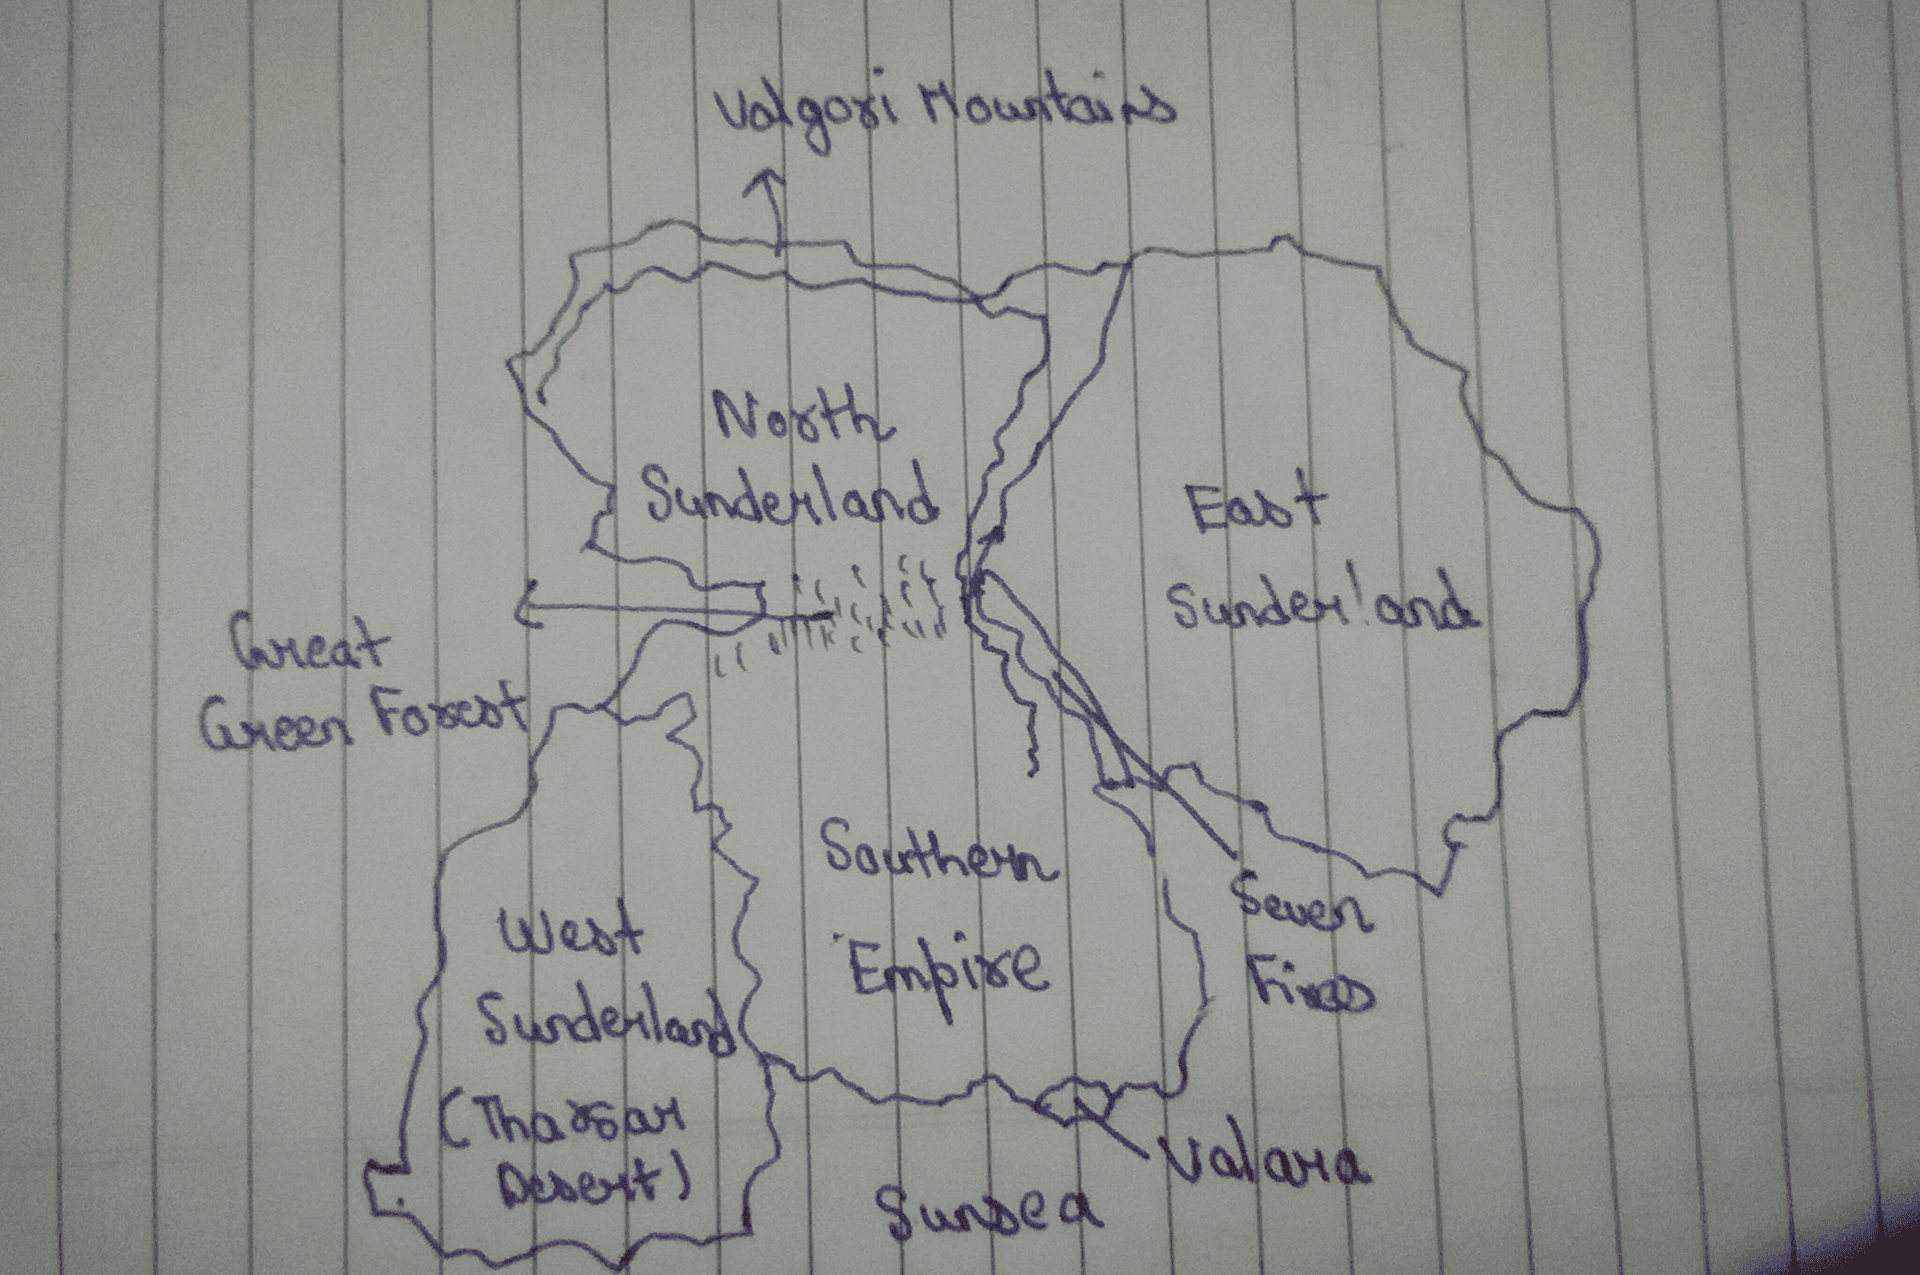 Valgori Mountains
North
Sunderland
East
Sunderland
Great
Green Forest
Southern
Empire
West
Sunderland
(Tharsar
Desert)
Seven
Fires
Valara
Sunsea